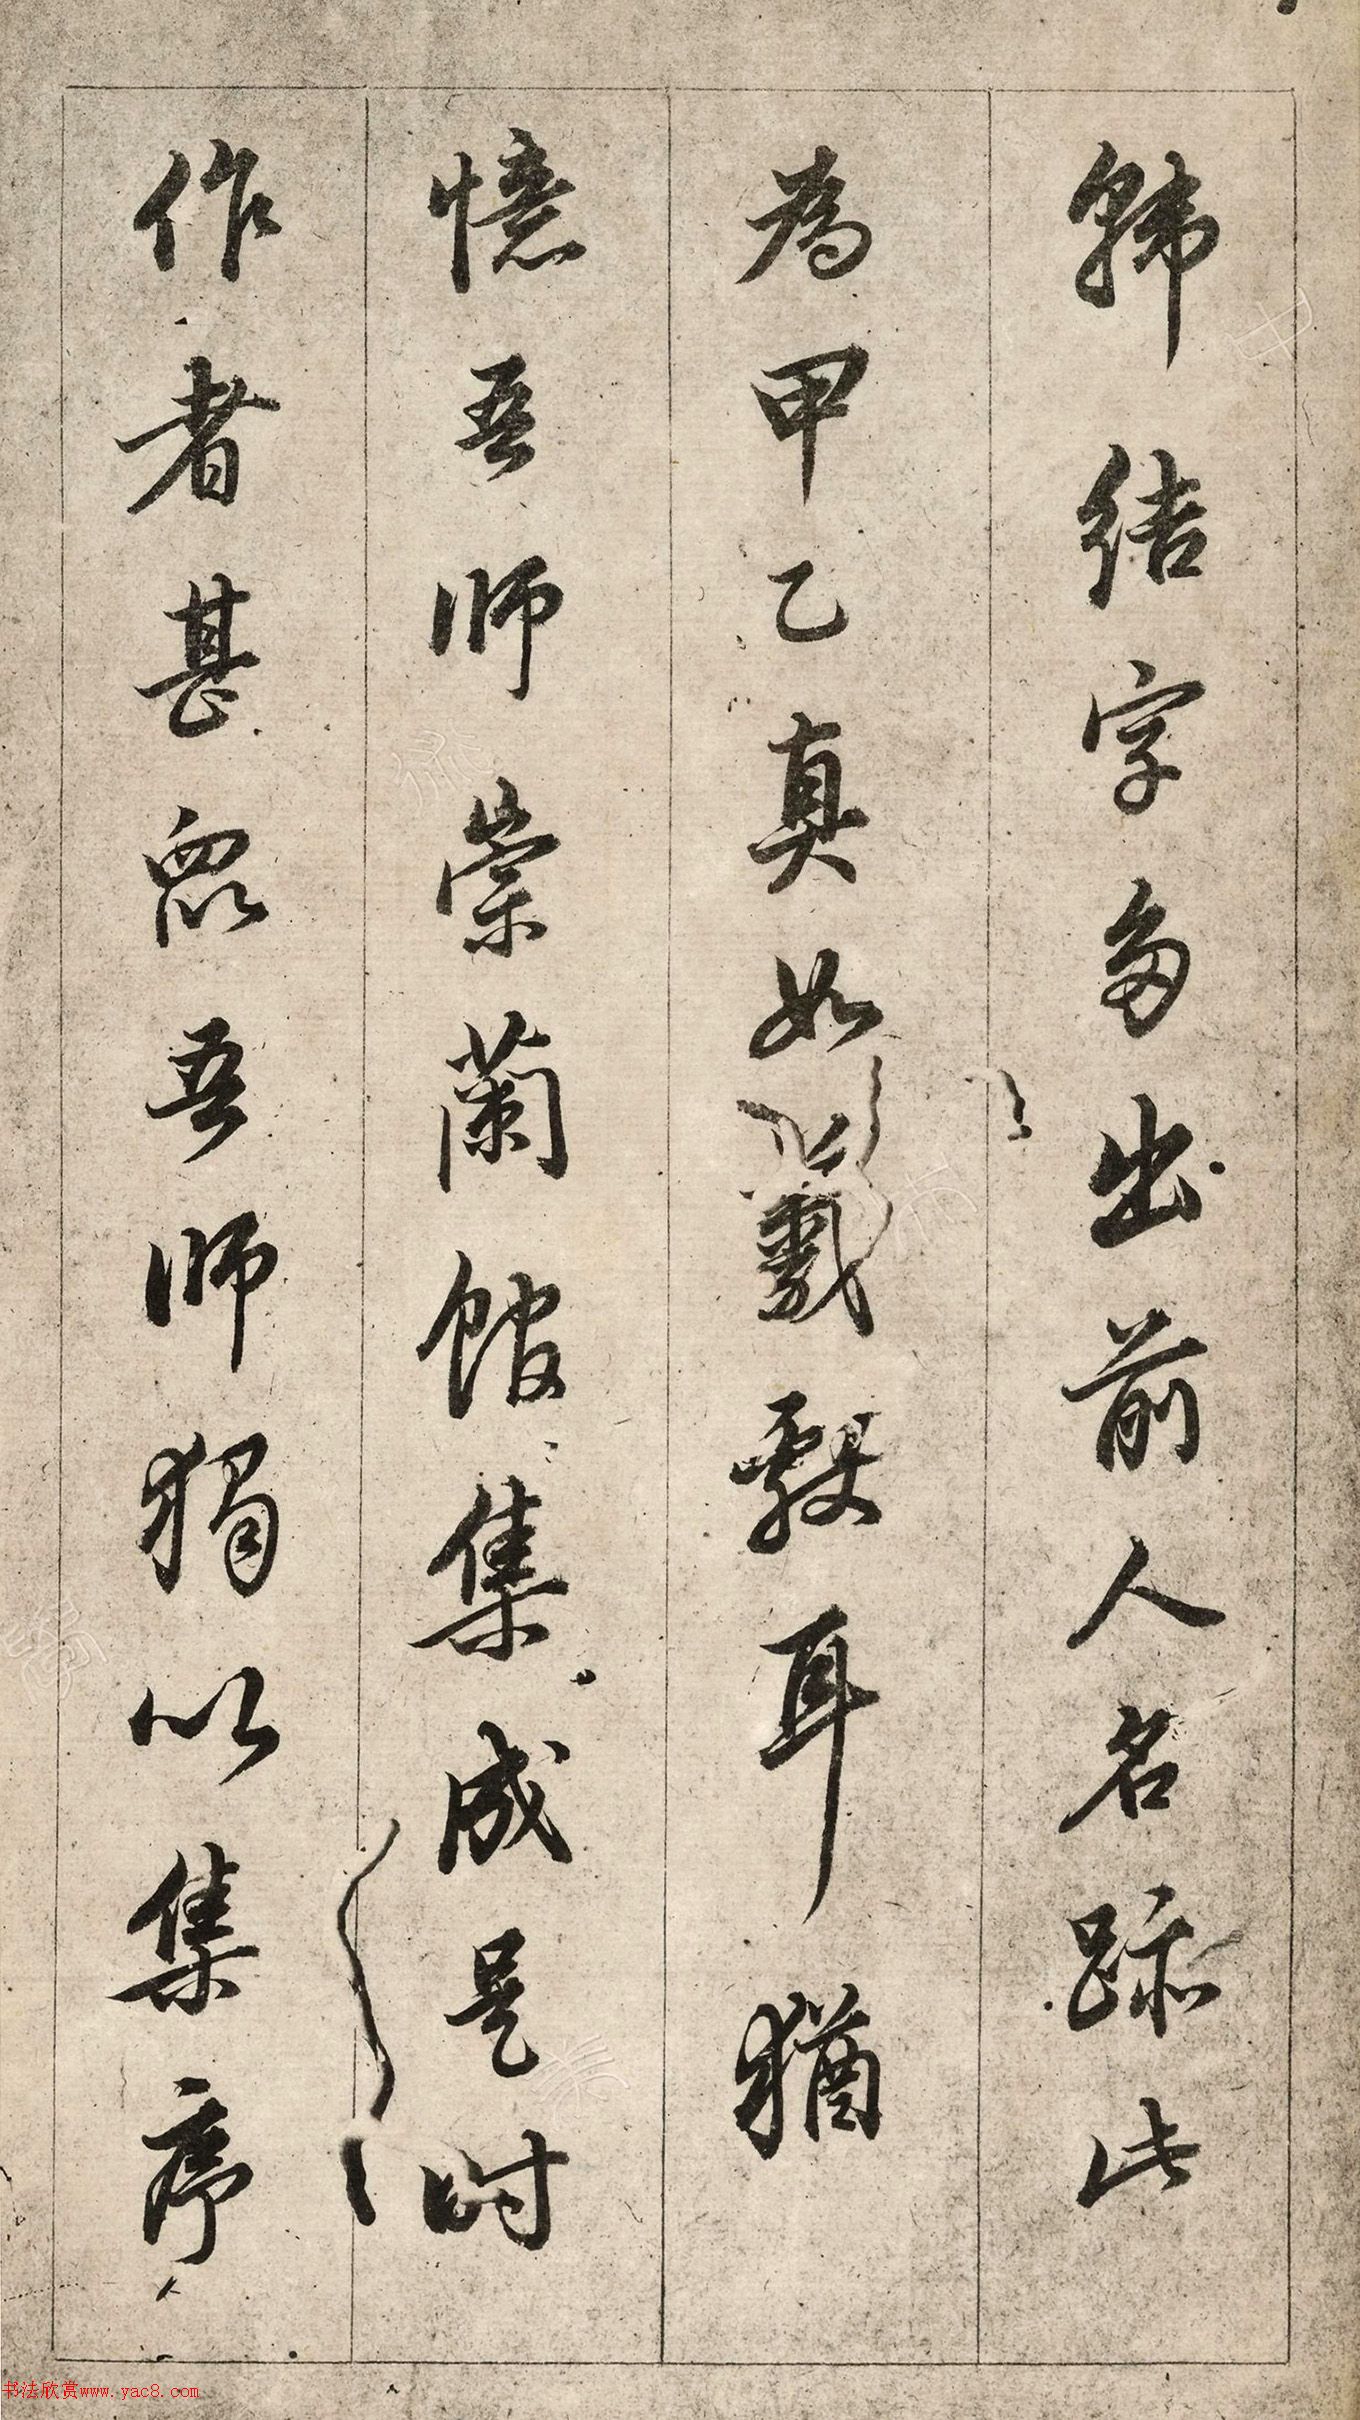 歸結字多出前人名跡此
為甲乙真如羲
耳猶
憶吾師崇蘭館集成是時
作者甚眾吾師獨以集序
书法欣赏www.yac8.com